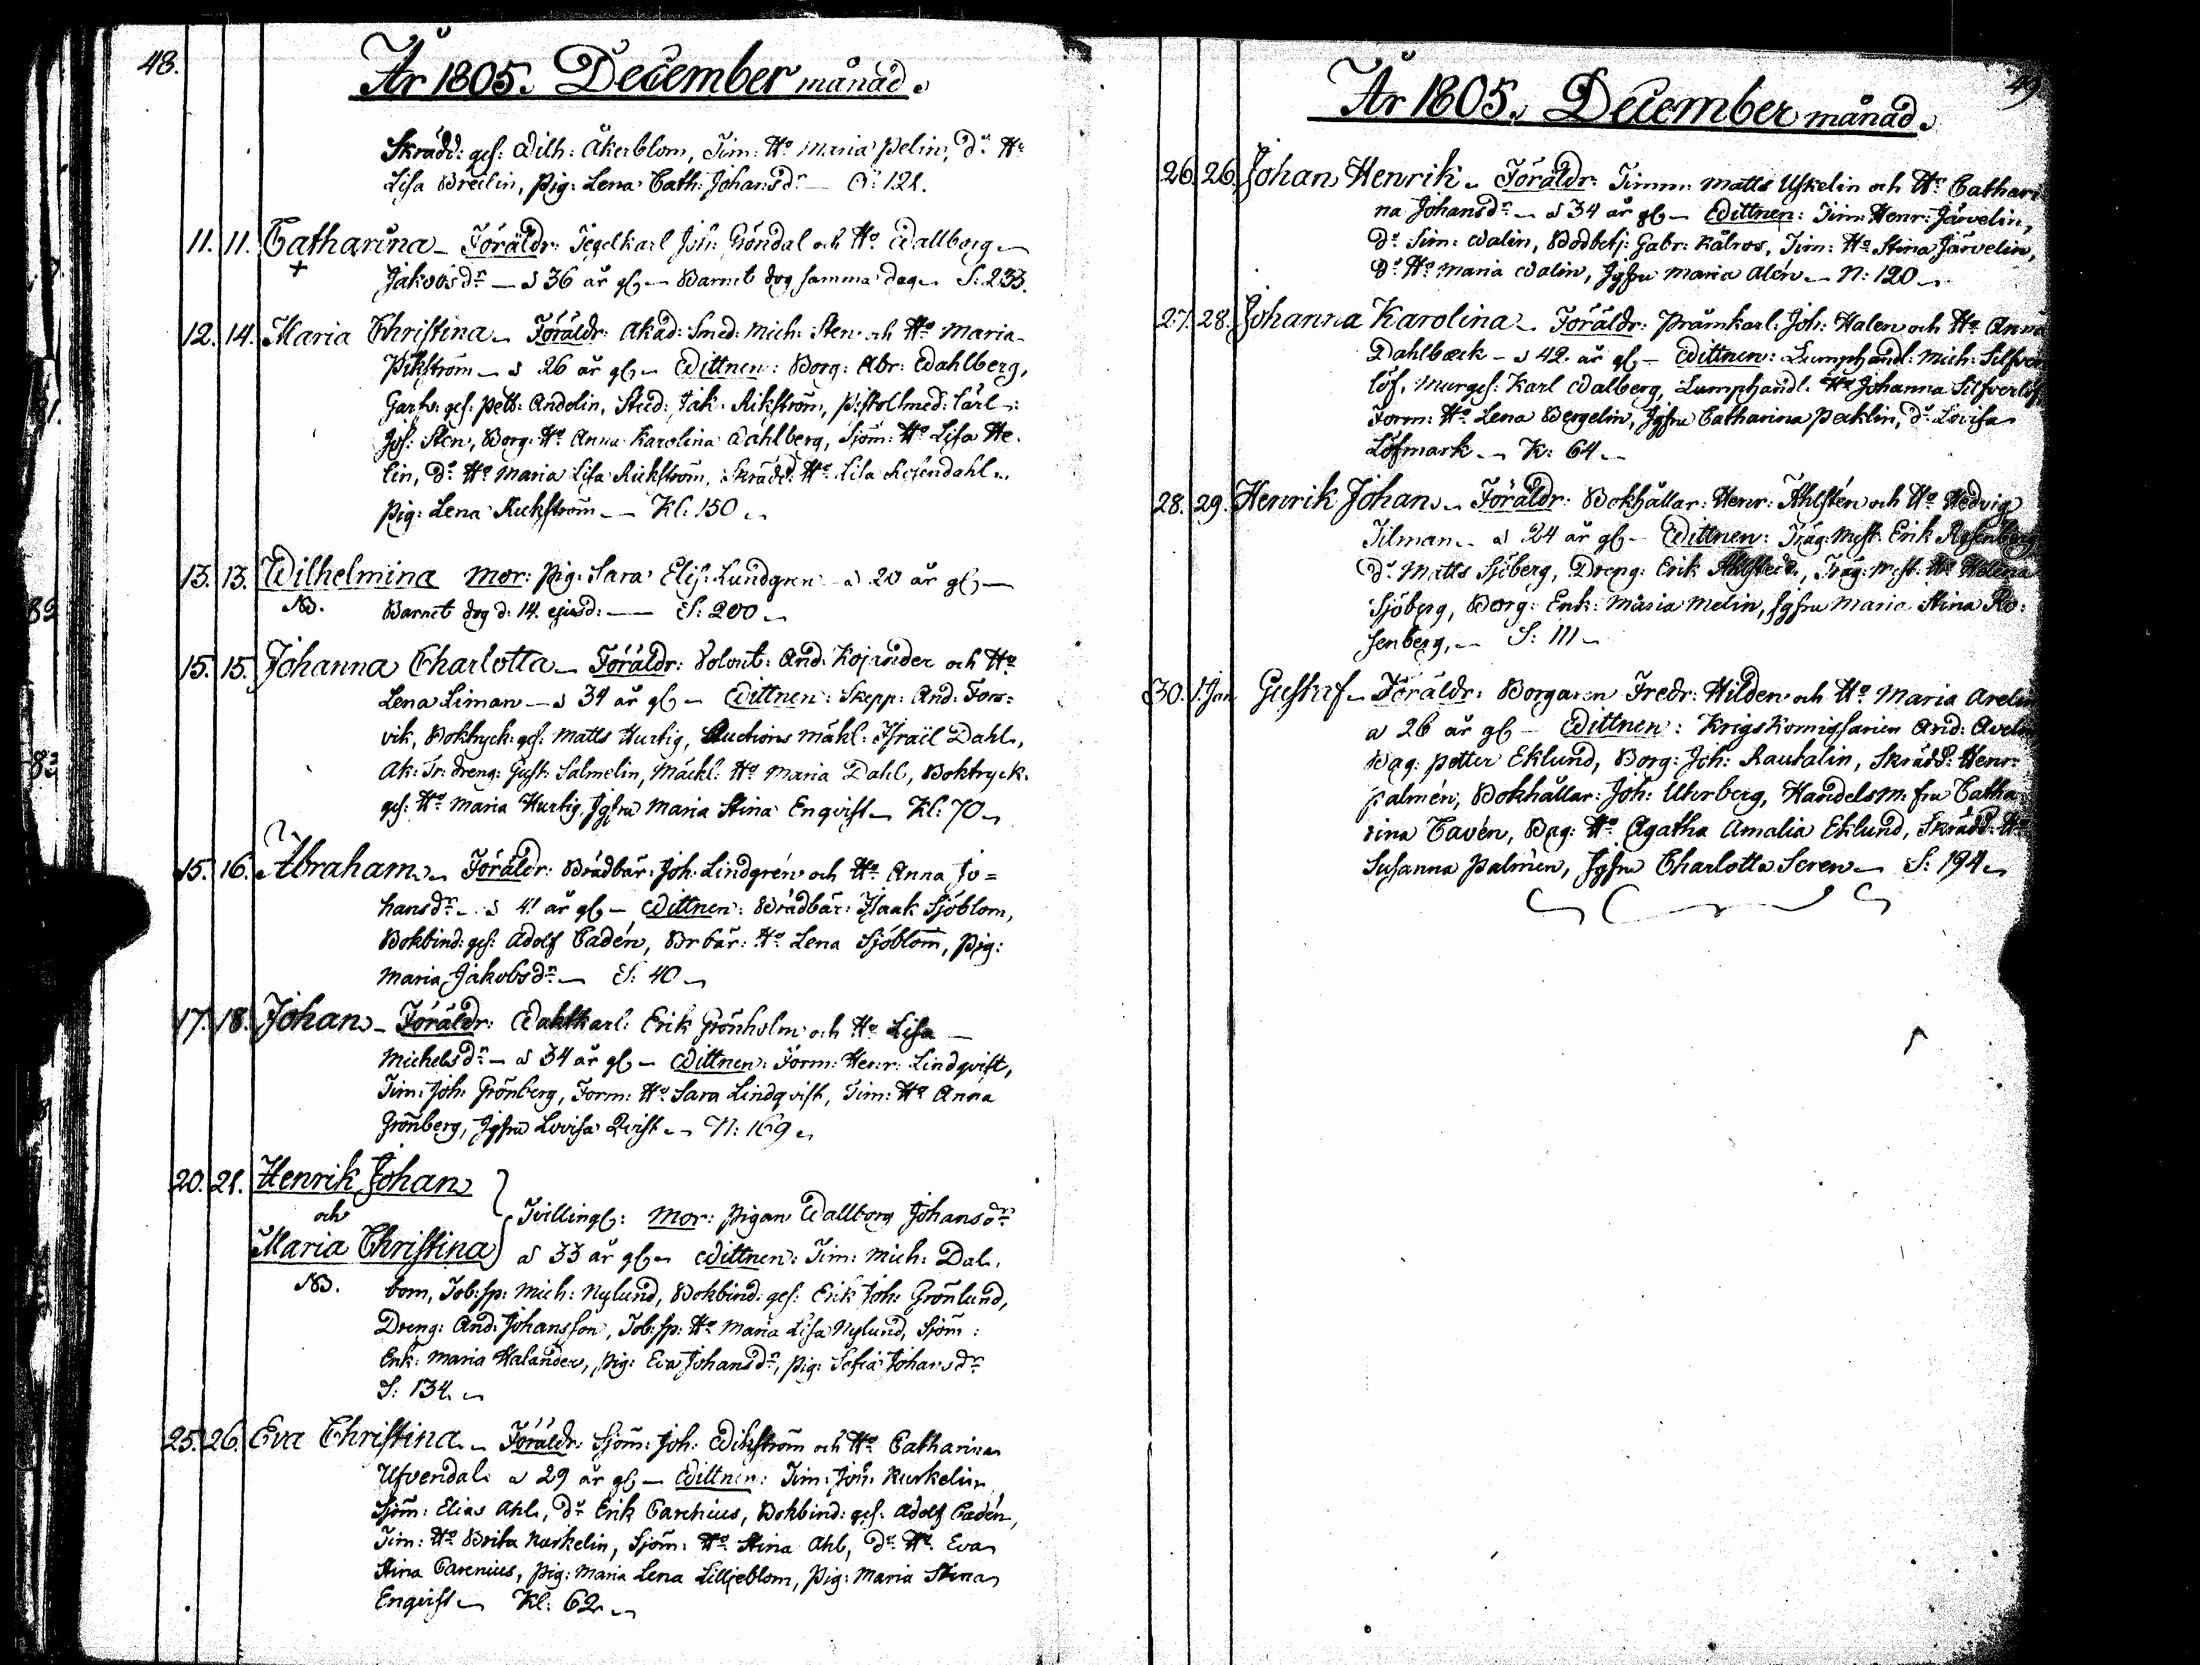 48.
År 1805. December månad.
Skrädd: ges: Wilh: Åkerblom, Tim: Ho Maria Pelin, Do Ho
Lisa Breilin, Pig: Lena Cath: Johansdr — 121.
11. 11. Catharina — Föräldr: Tegelkarl Joh: Gröndal och Ho Wallborg
+ Jakobsdr — a 36 år gl — Barnet dog samma dag. S: 233.
12. 14. Maria Christina — Föräldr: Akad: Smed: Mich: Sten och Ho Maria
Rikström — a 26 år gl — Wittnen: Borg: Abr: Wahlberg,
Garfv: ges: Pett: Andelin, Stud: Jak: Rikström,
Jos: Sten, Borg: Ho Anna Karolina Wahlberg, Sjöm: Ho Lisa He-
lin, Do Ho Maria Lisa Rickström, Skrädd: Ho Lisa Rosendahl
Pig: Lena Rickström — Kl: 150
13. 13. Wilhelmina Mor: Pig: Sara Elis: Lundgren a 20 år gl —
NB. Barnet dog d: 14. ejusd: — S: 200
15. 15. Johanna Charlotta — Föräldr: Volont: And: och Ho
Lena Liman — a 34 år gl — Wittnen: Skepp: And: Fors=
vik, Boktryck: ges: Matts Hurtig, Auctions mäkl: Israël Dahl,
Ak: Tr: dreng: Gust: Salmelin, Mäckl: Ho Maria Dahl, Boktryck:
ges: Ho Maria Hurtig, Jgfru Maria Stina Enqvist — Kl: 70
15. 16. Abraham — Föräldr: Brädbär: Joh: Lindgrén och Ho Anna Jo=
hansdr — a 41 år gl — Wittnen: Brädbär: Isaak Sjöblom,
Bokbind: ges: Adolf Cadén, Brbär: Ho Lena Sjöblom, Pig:
Maria Jakobsdr — S: 40
17. 18. Johan — Föräldr: Wahtkarl: Erik Grönholm och Ho Lisa —
Michelsdr — a 34 år gl — Wittnen: Form: Henr: Lindqvist,
Tim: Joh: Grönberg, Form: Ho Sara Lindqvist, Tim: Ho Anna
Grönberg, Jgfru Lovisa Qvist — N: 169
20. 21. Henrik Johan
och Tvillingl: Mor: Pigan Wallborg Johansdr
Maria Christina a 33 år gl — Wittnen: Tim: Mich: Dal-
NB. bom, Tob:sp: Mich: Nylund, Bokbind: ges: Erik Joh: Grönlund,
Dreng: And: Johansson, Tob:sp: Ho Maria Lisa Nylund, Sjöm:
Enk: Maria Halander, Pig: Eva Johansdr, Pig: Sofia Johansdr
S: 134
25. 26. Eva Christina — Föräldr: Sjöm: Joh: Wikström och Ho Catharina
Ufvendal a 29 år gl — Wittnen: Tim: Joh:
Sjöm: Elias Ahl, Do Erik Carenius, Bokbind: ges: Adolf Cadén,
Tim: Ho Brita Sjöm: Ho Stina Ahl, Do Ho Eva
Stina Carenius, Pig: Maria Lena Lilljeblom, Pig: Maria Stina
Enqvist — Kl: 62
49
År 1805. December månad.
26. 26. Johan Henrik — Föräldr: Timm: Matts Uskelin och Ho Cathari
na Johansdr — a 34 år gl — Wittnen: Tim: Henr: Järvelin,
Do Sim: Walin, Bodbetj: Gabr: Kälros, Tim: Ho Stina Järvelin,
Do Ho Maria Walin, Jgfru Maria Alén — N: 120
27. 28. Johanna Karolina — Föräldr: Pråmkarl: Joh: Halen och Ho Anna
Dahlbæck — a 42 år gl — Wittnen: Lumphandl: Mich: Silfver
löf, Murges: Karl Walberg, Lumphandl: Ho Johanna Silfverlöf,
Form: Ho Lena Bergelin, Jgfru Catharina Pecklin, Do Lovisa
Löfmark — K: 64
28. 29. Henrik Johan — Föräldr: Bokhållar: Henr: Ahlstén och Ho Hedvig
Tilman — a 24 år gl — Wittnen: Träg: Mest: Erik Rosenberg
Do Matts Sjöberg, Dreng: Erik Träg: Mest: Ho Helena
Sjöberg, Borg: Enk: Maria Melin, Jgfru Maria Stina Ro=
senberg, — S: 111
30. 1. Jan Gustaf — Föräldr: Borgaren Fredr: Hilden och Ho Maria Avelin
a 26 år gl — Wittnen: Krigskomissarien And: Avelin
Bag: Petter Eklund, Borg: Joh: Rautalin, Skrädd: Henr:
Palmén, Bokhållar: Joh: Uhrberg, Handelsm: fru Catha
rina Cavén, Bag: Ho Agatha Amalia Eklund, Skrädd: Ho
Susanna Palmén, Jgfru Charlotta Seren — S: 194